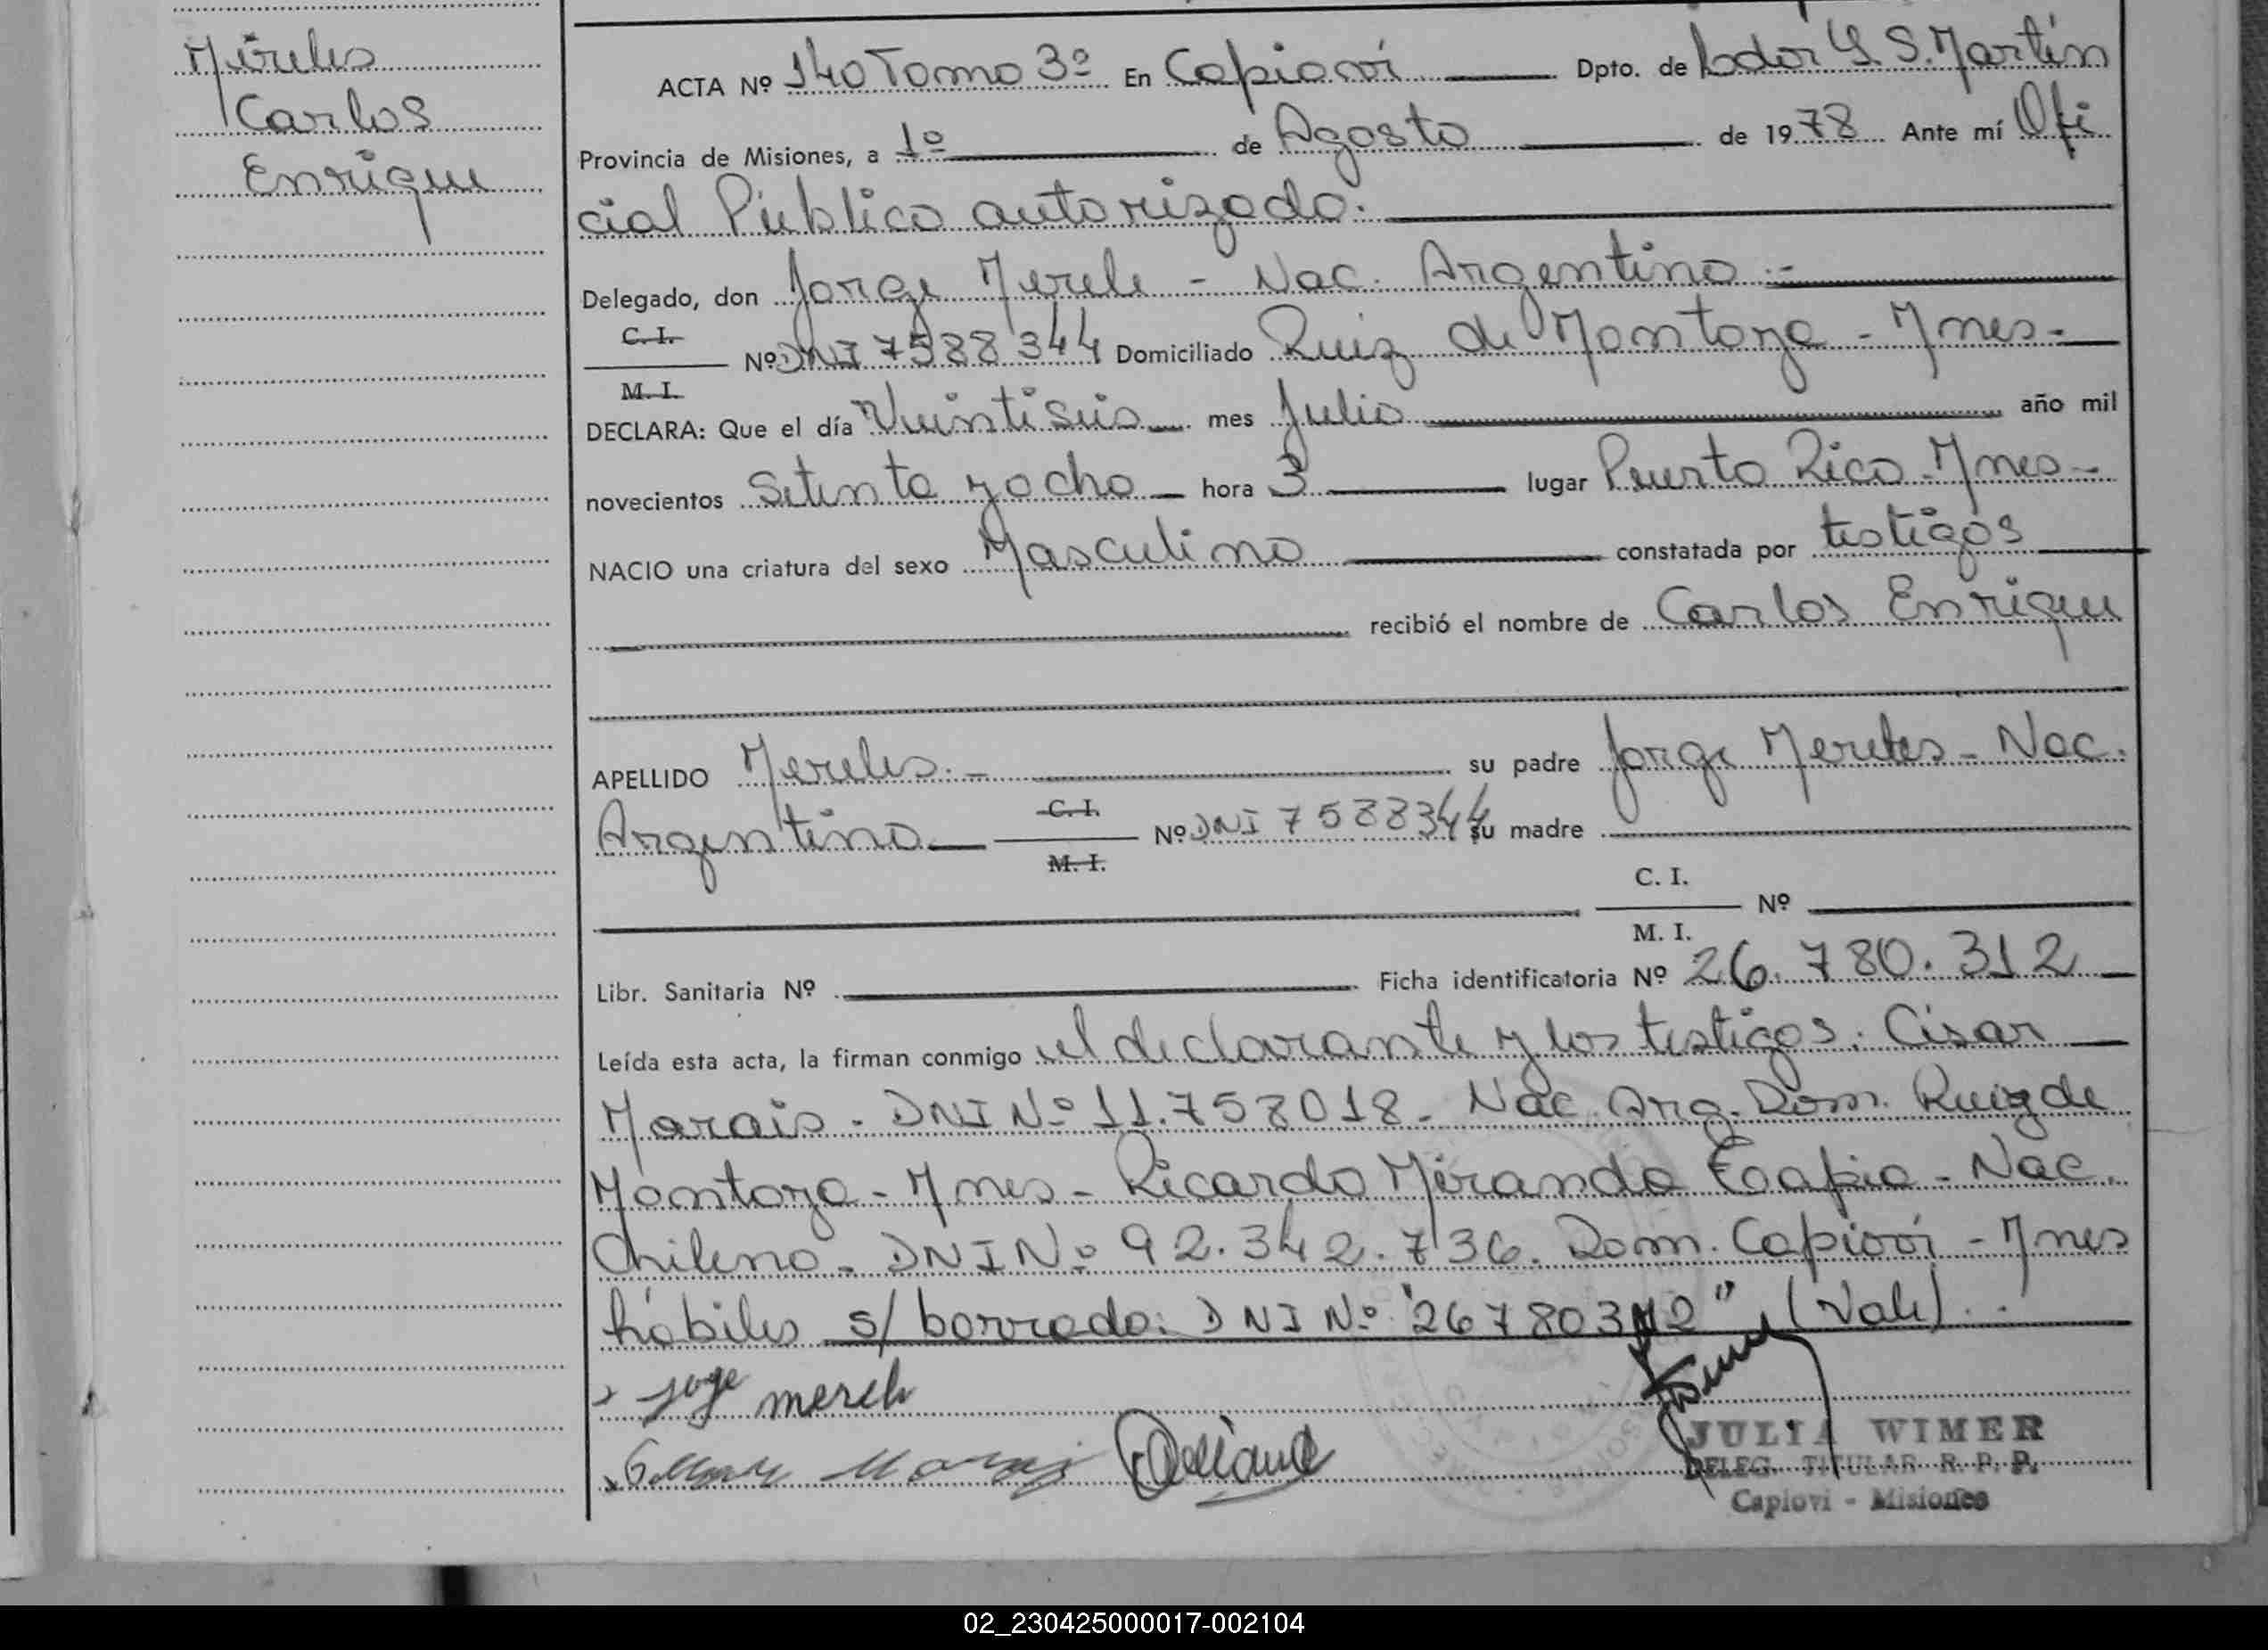 Mereles
Carlos
Enrique
ACTA Nº 140 Tomo 3º En Capioví Dpto. de Lbdor G. S. Martín
Provincia de Misiones, a 1º de Agosto de 1978 Ante mí Ofi
cial Público autorizado.
Delegado, don Jorge Merele - Nac. Argentino.-
C. I.
Nº DNI 7588344 Domiciliado Ruiz de Montoya - Mnes-
M. I.
DECLARA: Que el día Veintiseis mes Julio año mil
novecientos Setenta y ocho hora 3 lugar Puerto Rico - Mnes-
NACIO una criatura del sexo Masculino constatada por testigos
recibió el nombre de Carlos Enrique
APELLIDO Mereles.- su padre Jorge Mereles - Nac.
Argentino C. I. Nº DNI 7588344 su madre
M. I.
C. I.
Nº
M. I.
Libr. Sanitaria Nº Ficha identificatoria Nº 26.780.312
Leída esta acta, la firman conmigo el declarante y los testigos: Cesar
Morais - DNI Nº 11.758018 - Nac. Arg. Dom. Ruiz de
Montoya - Mnes - Ricardo Miranda - Nac.
Chileno - DNI Nº 92.342.736. Dom. Capioví - Mnes
hábiles s/ borrado: DNI Nº "26780312" (Vale)..
Jorge merele
JULIA WIMER
DELEG. TITULAR R. P. P.
Capiovi - Misiones
02_230425000017-002104